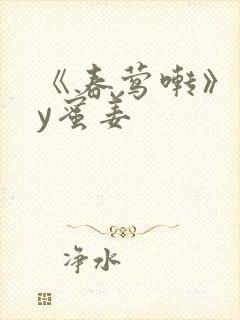 《春莺啭》
y蜜姜
净水